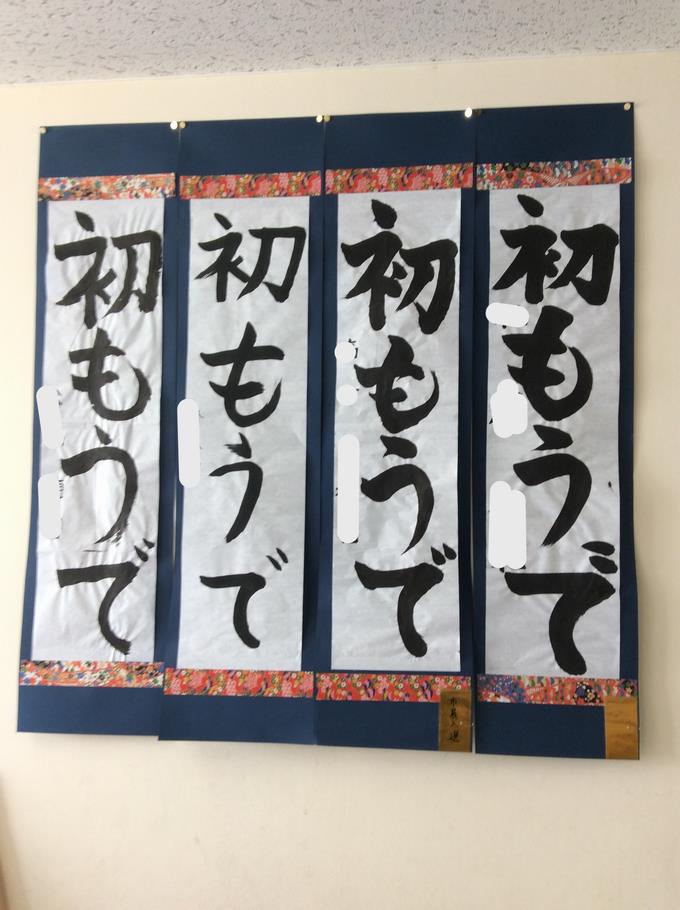 初もうで
初もうで
初もうで
初もうで